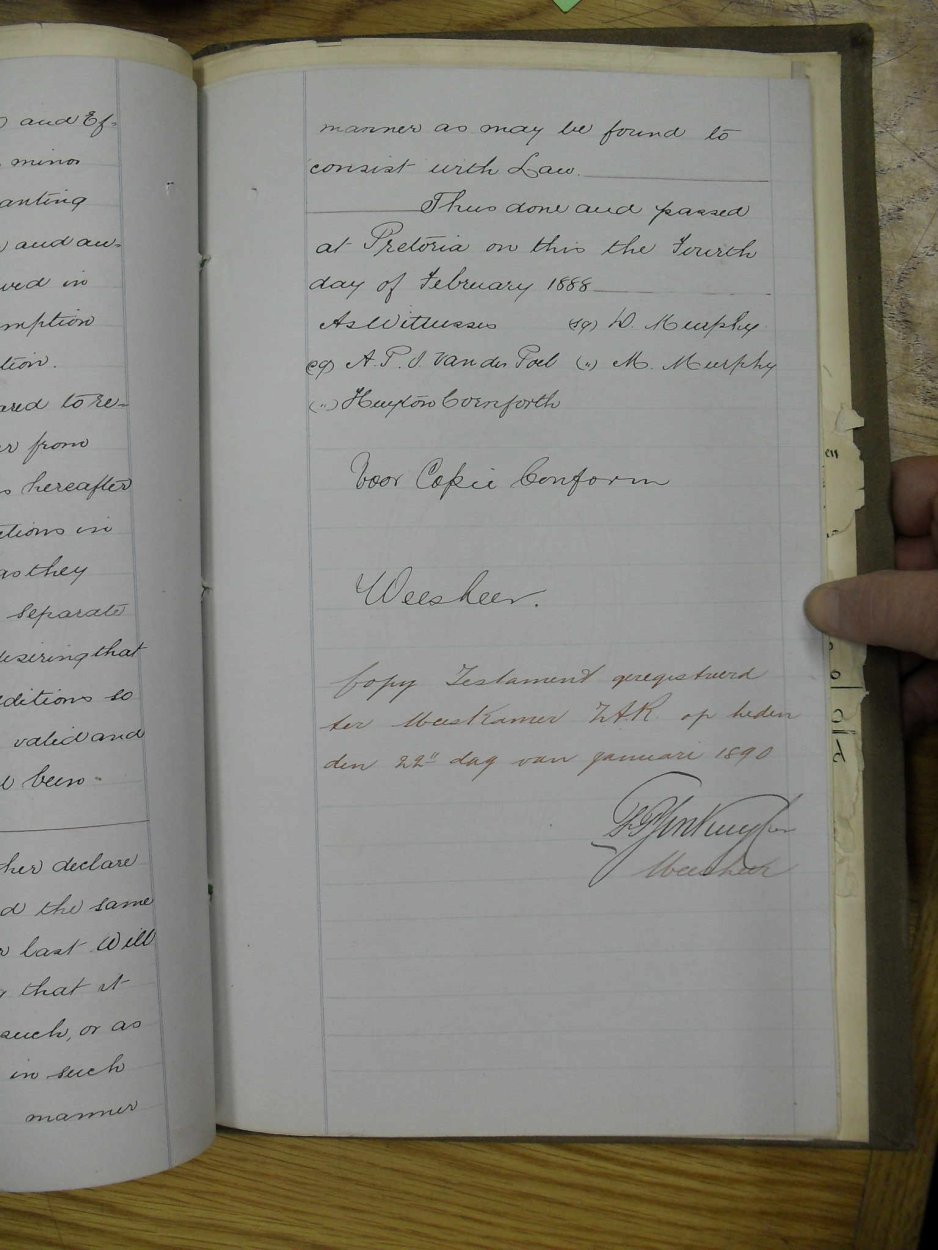 and Ef-
minor
anting
and au-
ved in
mption
tion.
ared to re-
from
hereafter
ctions in
as they
separate
desiring that
ditions so
valid and
been
her declare
d the same
last Will
that it
such, or as
in such
manner
manner as may be found to
consist with Law.
Thus done and passed
at Pretoria on this the Fourth
day of February 1888
As Witnesses (sg) D. Murphy
(sg) A. P. J. van der Poel (") M. Murphy
(")
Voor Copie Conform
Weesheer.
Copy Testament geregistreerd
ter Weeskamer Z.A.R. op heden
den 22" dag van Januari 1890
Weesheer